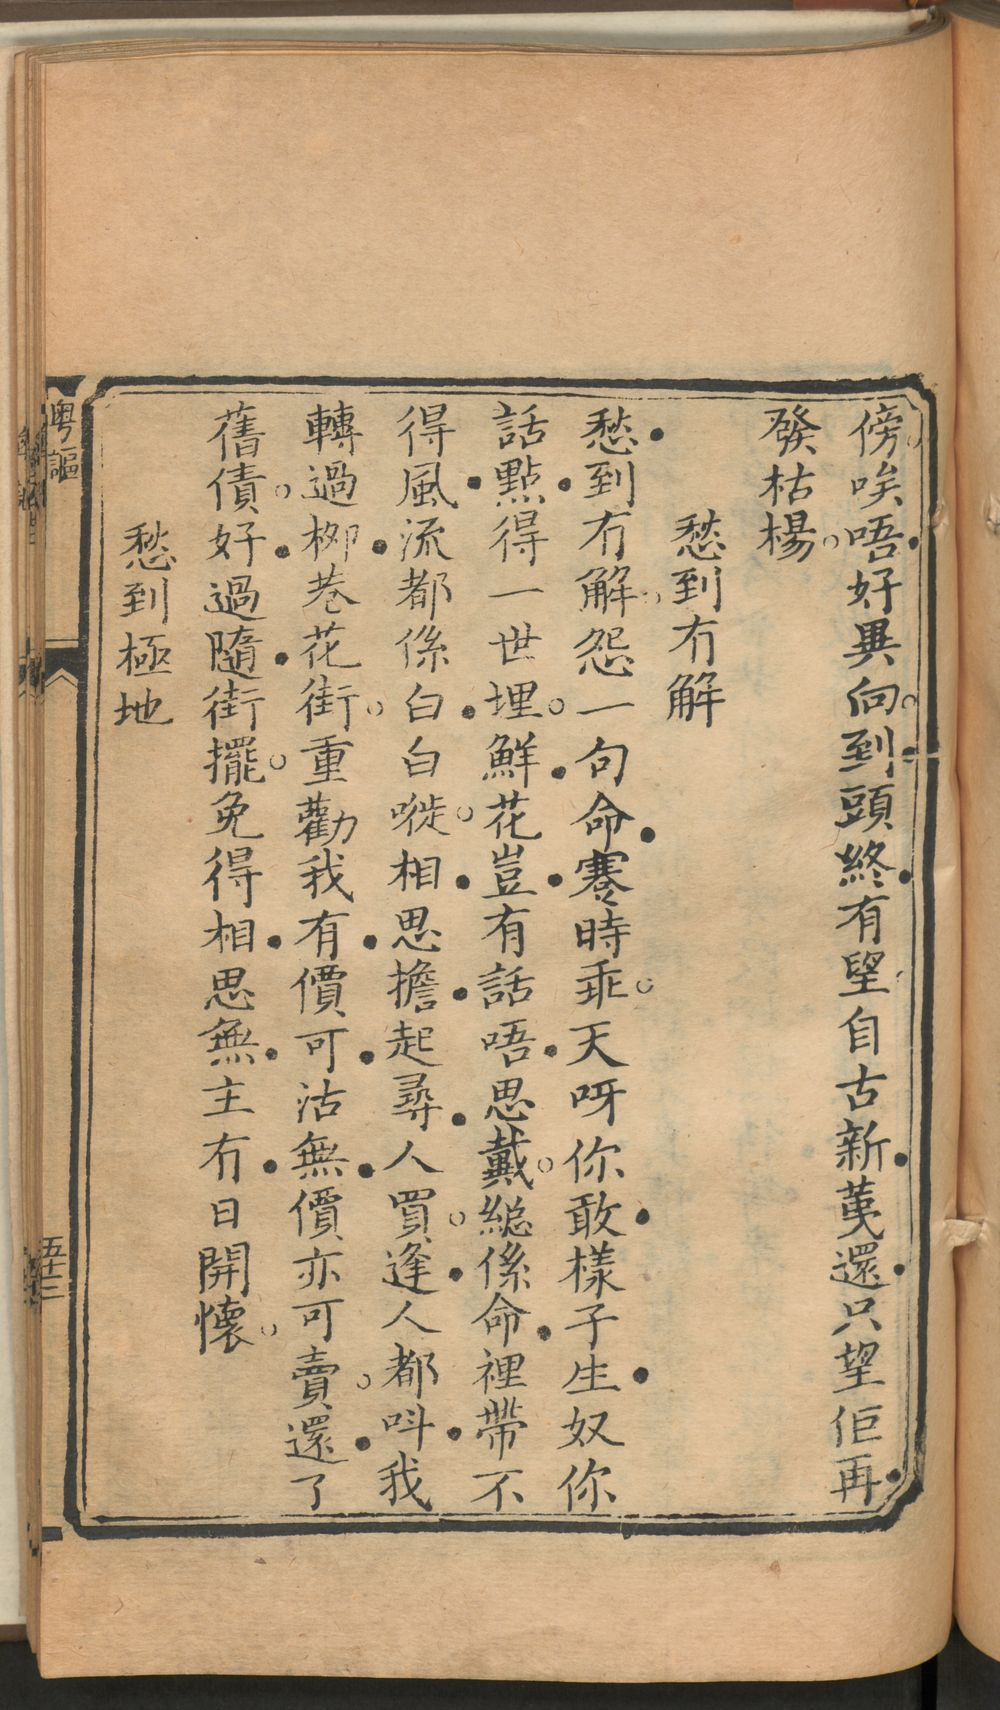 傍唉唔好異向到頭終有望自古新荑還只望佢再
發枯楊
愁到冇解
愁到冇解怨一句命蹇時乖天呀你敢樣子生奴你
話點得一世埋鮮花豈有話唔思戴緫係命裡帶不
得風流都係白白嘥相思擔起尋人買逢人都呌我
轉過柳巷花街重勸我有價可沽無價亦可賣還了
舊債好過隨街擺免得相思無主冇日開懷
愁到極地
粵謳
五十三